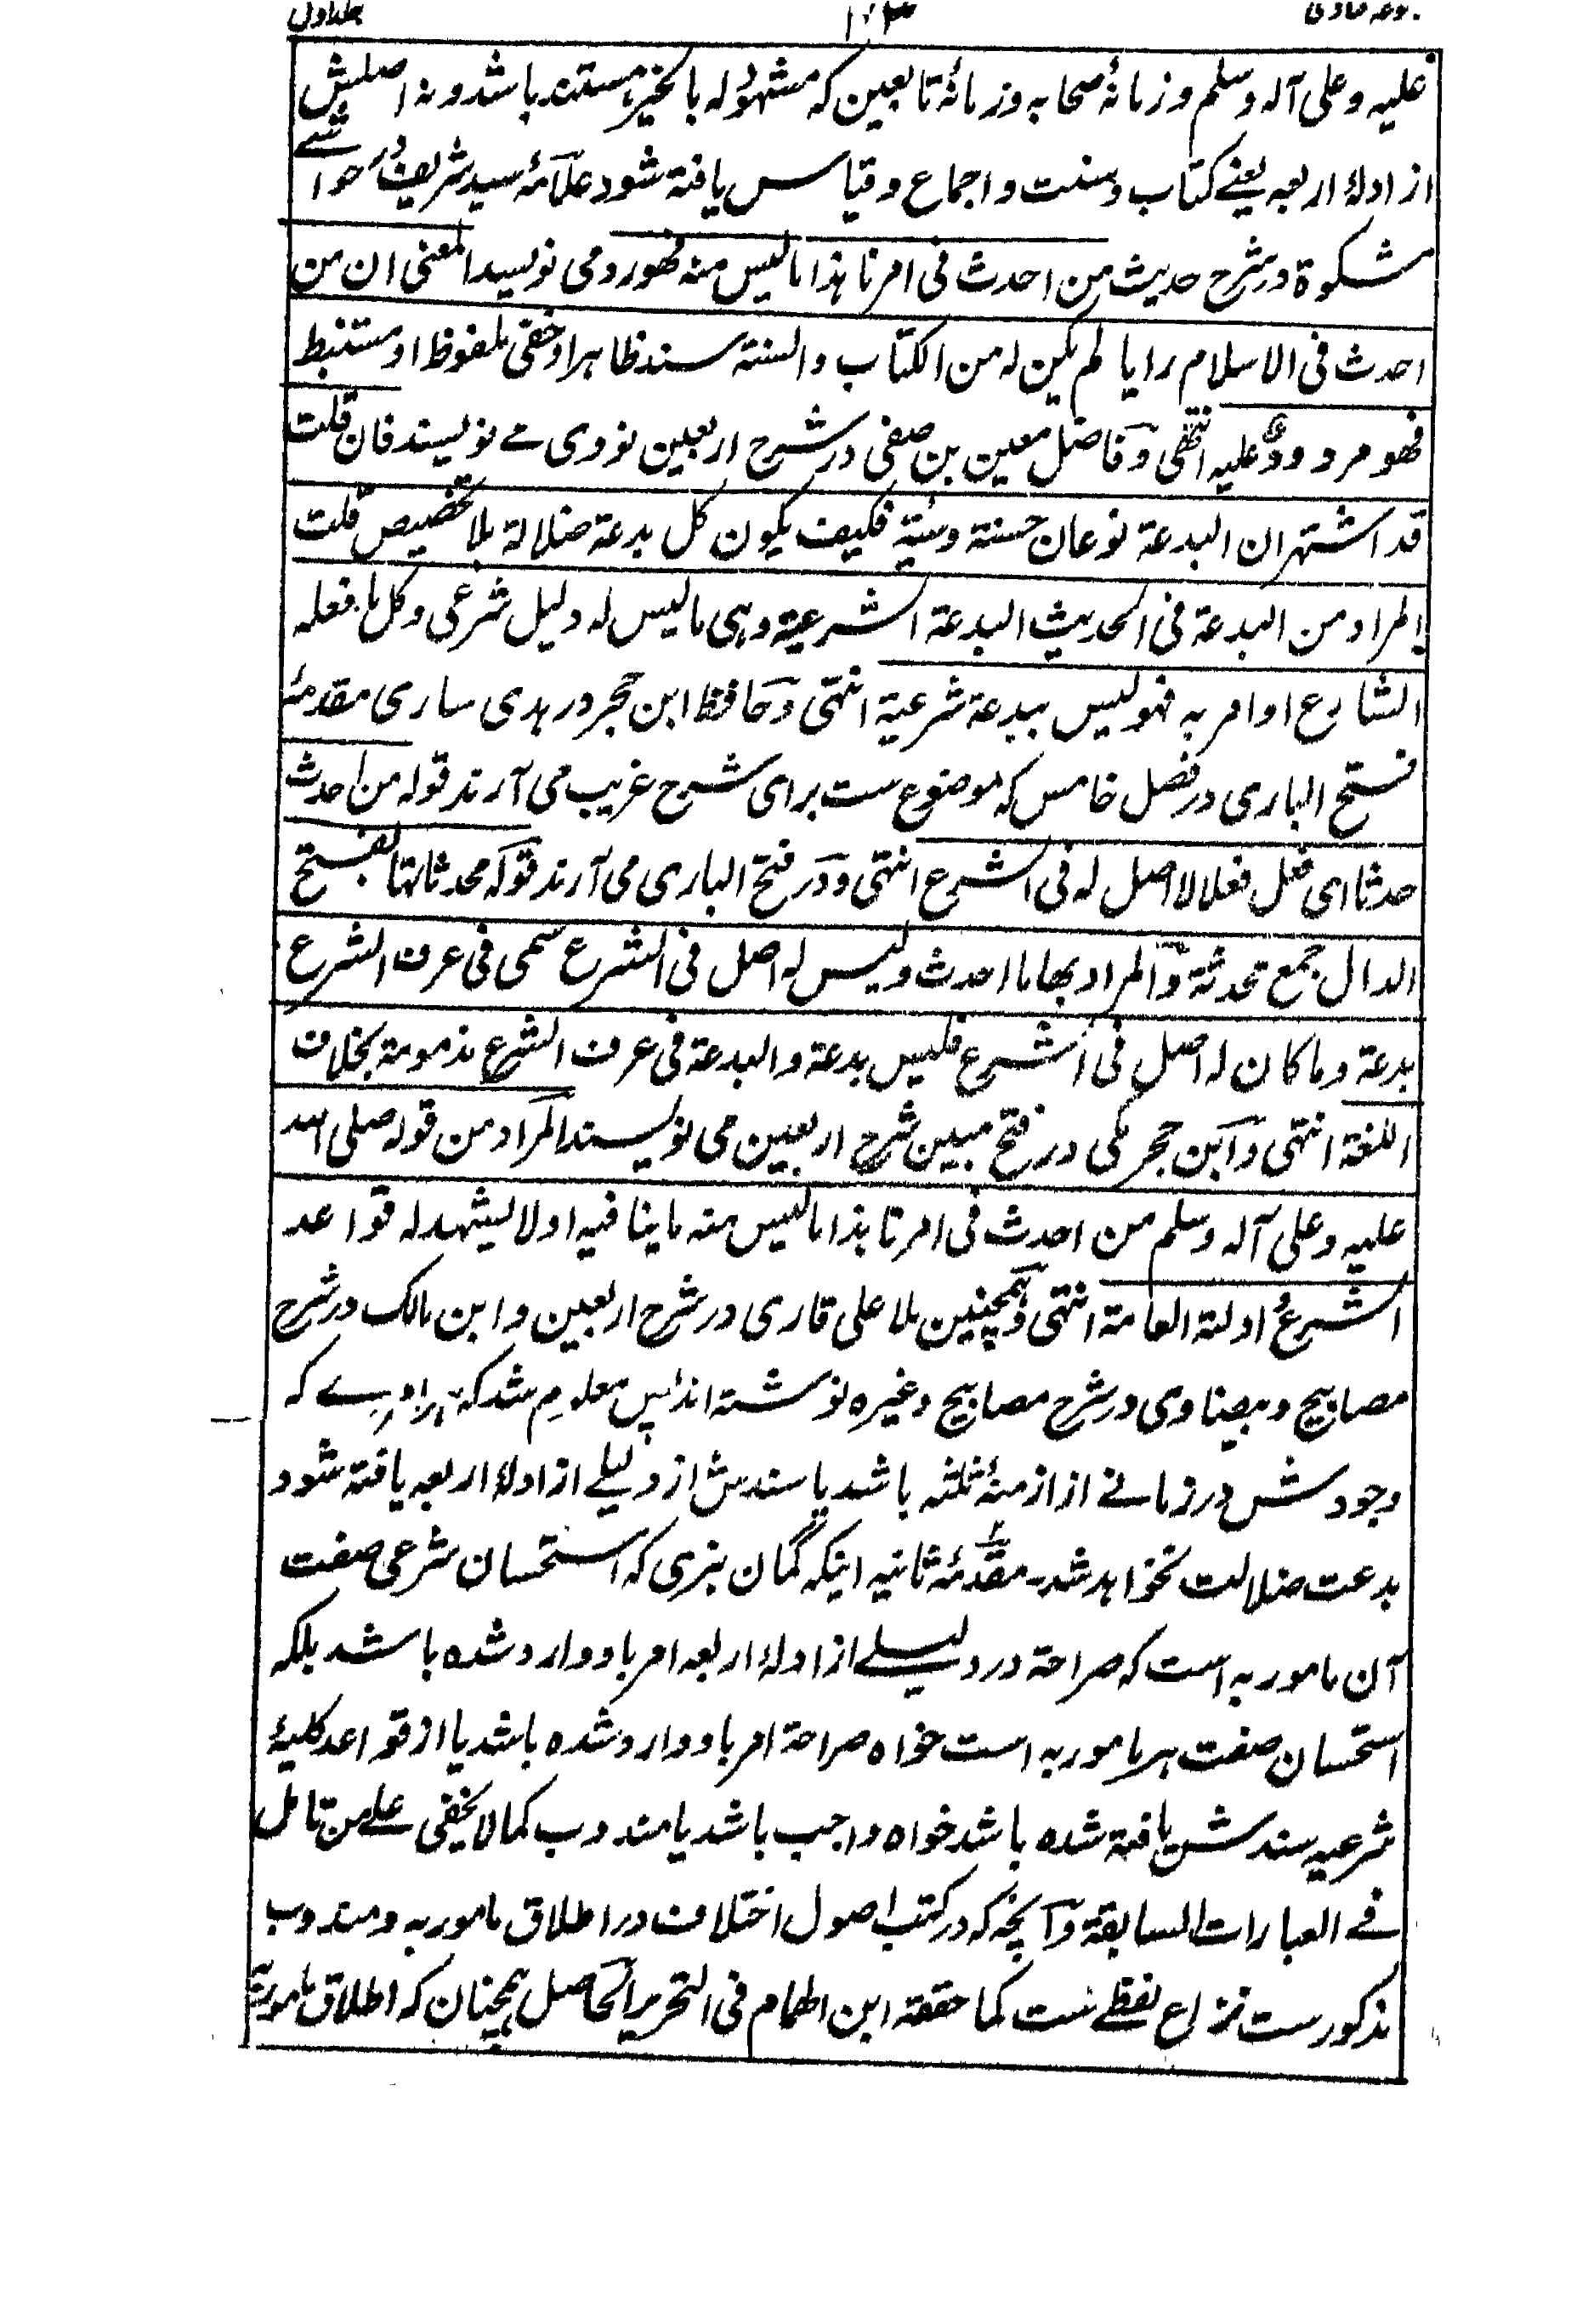 جلد اول
علیہ وعلی آلہ وسلم وزمانۂ صحابہ وزمانۂ تابعین کہ مشہود لہ بالخیر مستند باشد ونہ اصلش
از ادلۂ اربعہ یعنے کتاب وسنت واجماع وقیاس یافتہ شود علامۂ سید شریف در حواشے
مشکوة در شرح حدیث من احدث فی امرنا ہذا ما لیس منہ فہو رد می نویسد المعنی ان من
احدث فی الاسلام رایا لم یکن لہ من الکتاب والسنة سند ظاہر او خفی ملفوظ او مستنبط
فہو مردود علیہ انتہی وفاضل معین بن صفی در شرح اربعین نووی مے نویسند فان قلت
قد اشتہر ان البدعة نوعان حسنة وسیئة فکیف یکون کل بدعة ضلالة بلا تخصیص قلت
المراد من البدعة فی الحدیث البدعة الشرعیة وہی ما لیس لہ دلیل شرعی وکل ما فعلہ
الشارع او امر بہ فہو لیس ببدعة شرعیة انتہی وحافظ ابن حجر در ہدی ساری مقدمۂ
فتح الباری در فصل خامس کہ موضوع ست برای شرح غریب می آرند قولہ من احدث
حدثا ای فعل فعلا لا اصل لہ فی الشرع انتہی ودر فتح الباری می آرند قولہ محدثاتہا بفتح
الدال جمع محدثة والمراد بہا ما احدث ولیس لہ اصل فی الشرع سمی فی عرف الشرع
بدعة وما کان لہ اصل فی الشرع فلیس بدعة والبدعة فی عرف الشرع مذمومة بخلاف
اللغة انتہی وابن حجر مکی در فتح مبین شرح اربعین می نویسند المراد من قولہ صلی اللہ
علیہ وعلی آلہ وسلم من احدث فی امرنا ہذا ما لیس منہ ما ینافیہ او لا یشہد لہ قواعد
الشرع او ادلتہ العامة انتہی وہمچنین ملا علی قاری در شرح اربعین وابن مالک در شرح
مصابیح وبیضاوی در شرح مصابیح وغیرہ نوشتہ اند پس معلوم شد کہ ہر امرے کہ
وجودش در زمانے از ازمنۂ ثلثہ باشد یا سندش از دلیلے از ادلۂ اربعہ یافتہ شود
بدعت ضلالت نخواہد شد۔ مقدمۂ ثانیہ اینکہ گمان نبری کہ استحسان شرعی صفت
آن مامور بہ است کہ صراحة در دلیلے از ادلۂ اربعہ امر باو وارد شدہ باشد بلکہ
استحسان صفت ہر مامور بہ است خواہ صراحة امر باو وارد شدہ باشد یا از قواعد کلیۂ
شرعیہ سندش یافتہ شدہ باشد خواہ واجب باشد یا مندوب کما لا یخفی علے من تامل
فے العبارات السابقة وآنچہ کہ در کتب اصول اختلاف در اطلاق مامور بہ و مندوب
مذکورست نزاع لفظے ست کما حققہ ابن الہمام فی التحریر الحاصل ہمچنان کہ اطلاق مامور بہ